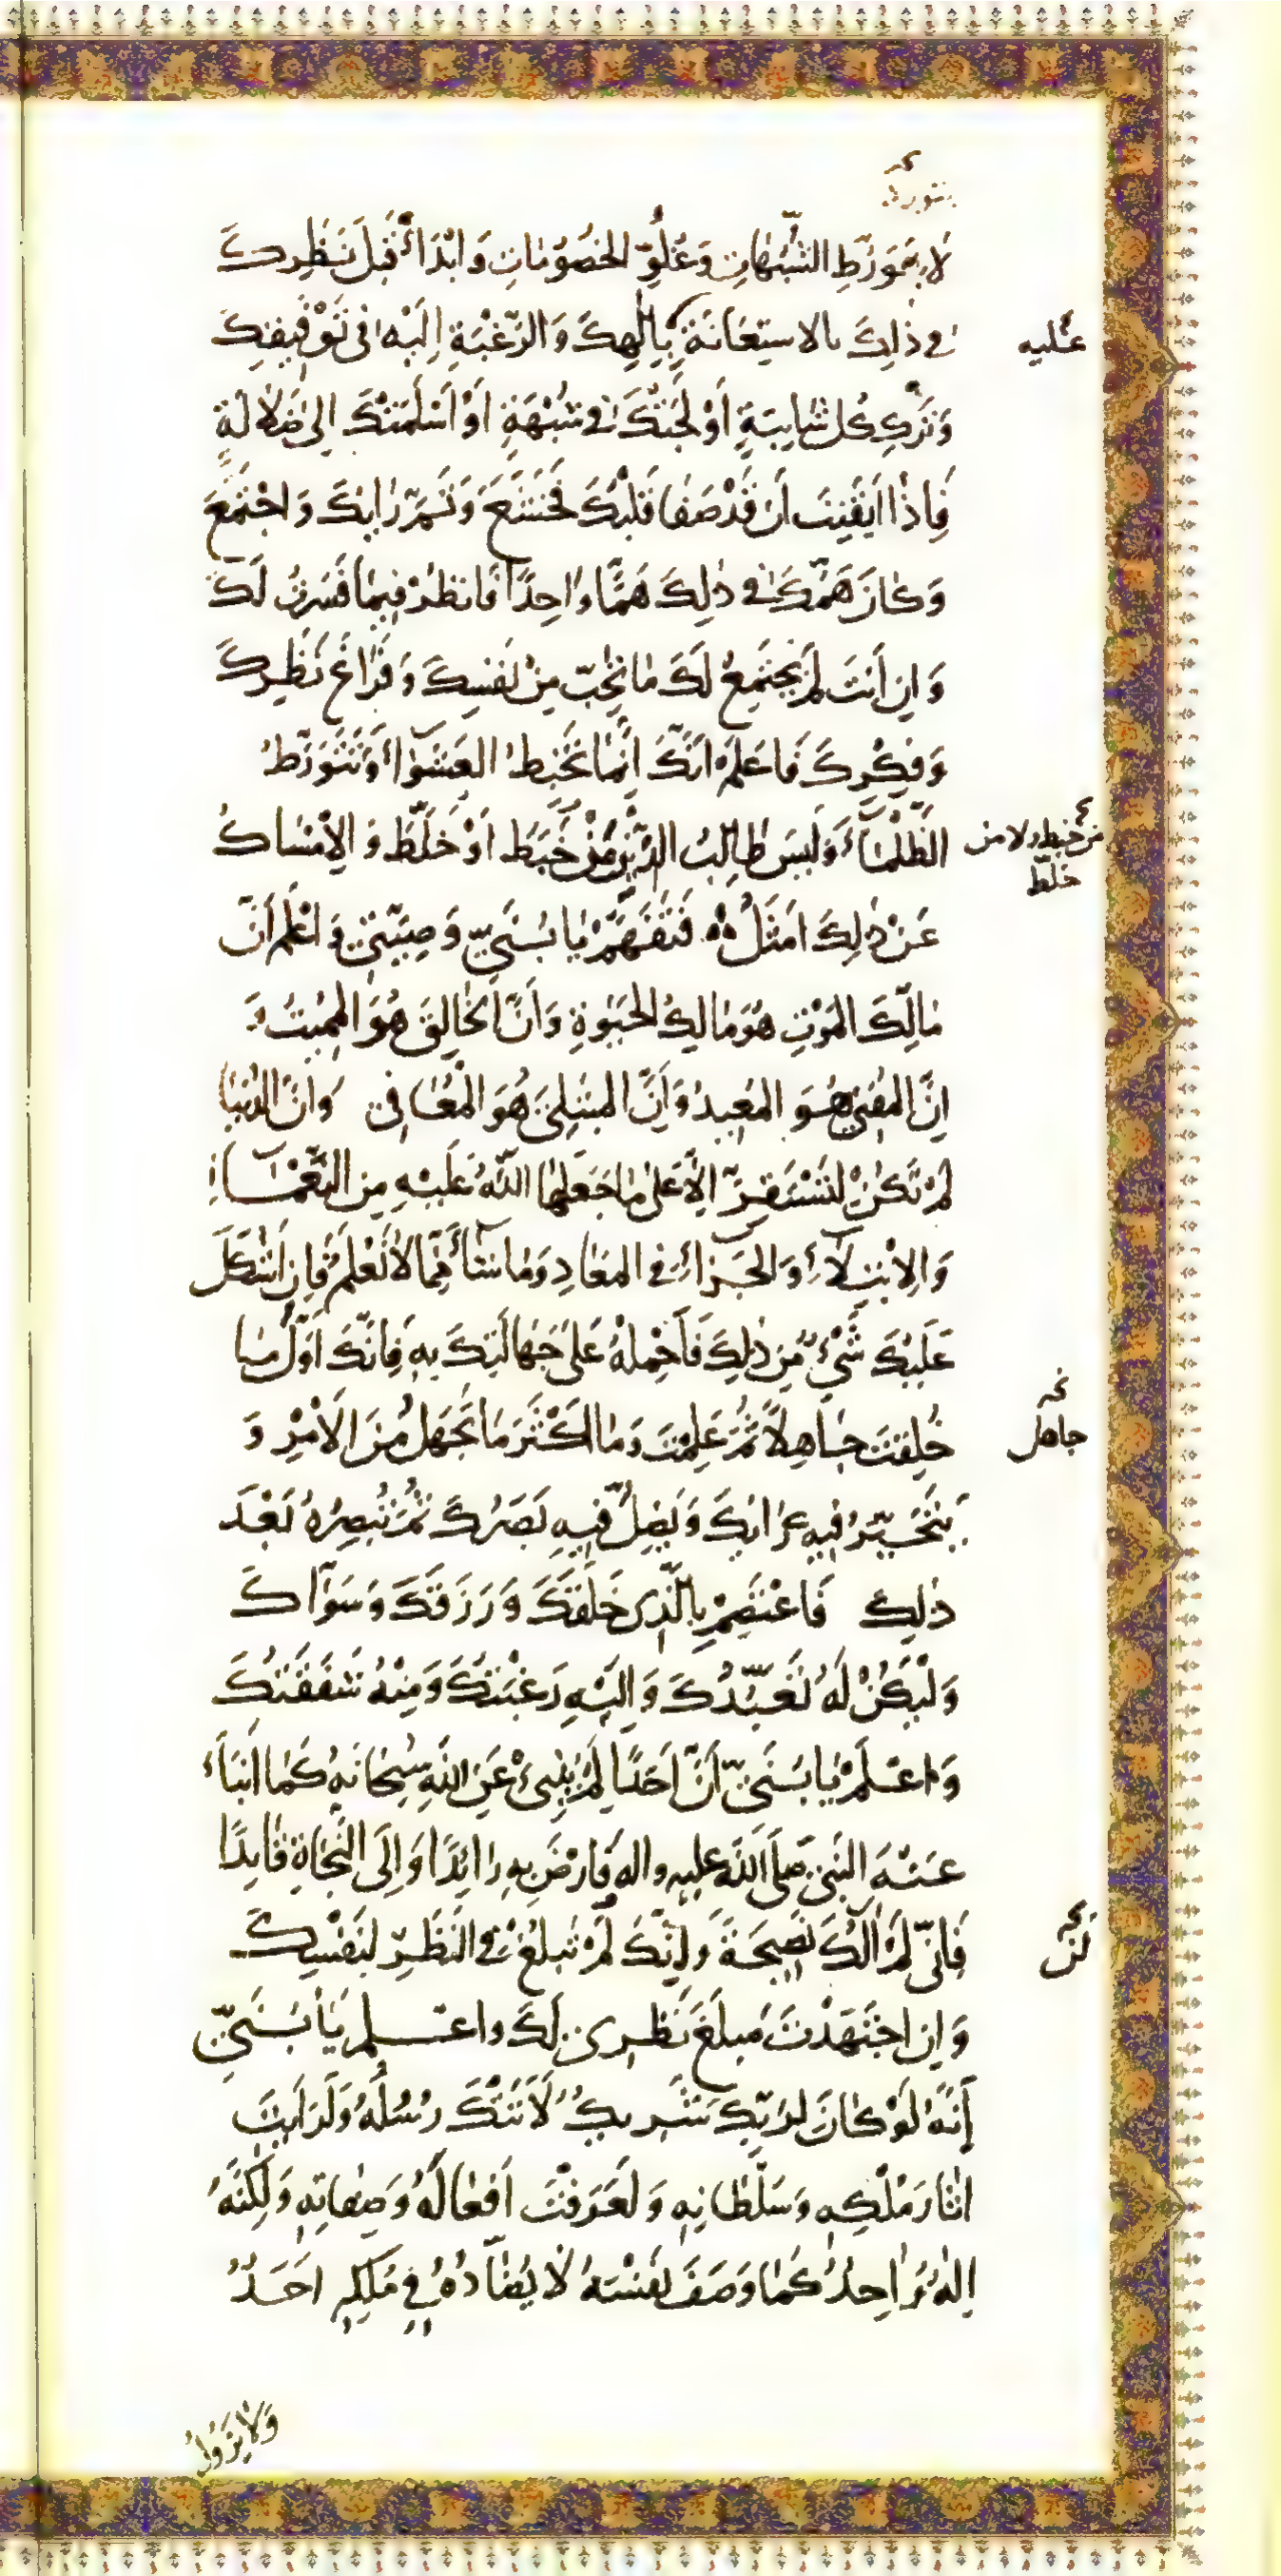 بتورط
لا بتورط الشبهات وعلو الخصومات وابدأ قبل نظرك
في ذلك بالاستعانة بإلهك والرغبة إليه في توفيقك
عليه
وترك كل شايبة أولجتك في شبهة أو أسلمتك إلى ضلالة
فإذا أيقنت أن قد صفا قلبك فخشع وتم رايك واجتمع
وكان همك في ذلك هما واحدا فانظر فيما فسرت لك
وإن أنت لم يجتمع لك ما تحب من نفسك وفراغ نظرك
وفكرك فاعلم أنك إنما تخبط العشواء وتتورط
الظلماء وليس طالب الدين من خبط أو خلط والإمساك
من خبط ولا من
خلط
عن ذلك أمثل فتفهم يا بني وصيتي واعلم أن
مالك الموت هو مالك الحيوة وأن الخالق هو المميت و
إن المفني هو المعيد وأن المبتلي هو المعافي وأن الدنيا
لم تكن لتستقر إلا على ما جعلها الله عليه من النعماء
والابتلاء والجزاء في المعاد وما شاء مما لا نعلم فإن أشكل
عليك شيء من ذلك فاحمله على جهالتك به فإنك أول ما
خلقت جاهلا ثم علمت وما أكثر ما تجهل من الأمر و
جاهل
يتحير فيه رايك ويضل فيه بصرك ثم تبصره بعد
ذلك فاعتصم بالذي خلقك ورزقك وسواك
وليكن له تعبدك وإليه رغبتك ومنه شفقتك
واعلم يا بني أن أحدا لم ينبئ عن الله سبحانه كما أنبأ
عنه النبي صلى الله عليه واله فارض به رائدا وإلى النجاة قايدا
فإني لم آلك نصيحة وإنك لم تبلغ في النظر لنفسك
لن
وإن اجتهدت مبلغ نظري لك واعلم يا بني
أنه لو كان لربك شريك لأتتك رسله ولرايت
اثار ملكه وسلطانه ولعرفت أفعاله وصفاته ولكنه
إله واحد كما وصف نفسه لا يضاده في ملكه أحد
ولا يزول